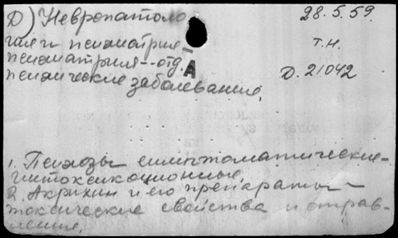 Д) Невропатоло
гия и психиатрия —
психиатрия — отд. А
психические заболевания.
28.5.59.
т.н.
Д. 21042
1. Психозы симптоматические —
интоксикационные.
2. Акрихин и его препараты —
токсические свойства и отрав-
ления.